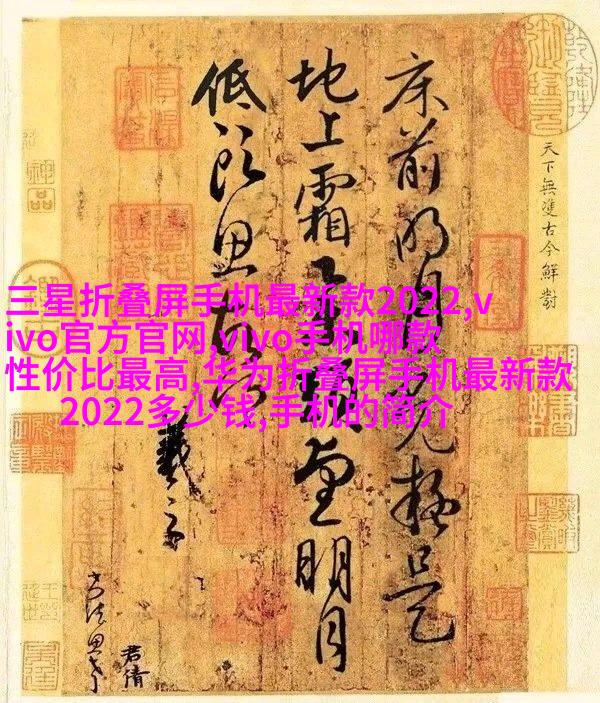 三星折叠屏手机最新款2022,v
ivo官方官网,vivo手机哪款
性价比最高,华为折叠屏手机最新款
2022多少钱,手机的简介
天下無雙古今鮮對
床前明月光疑是
地上霜举頭望明月
低头思故乡
羲之
君倩
神品